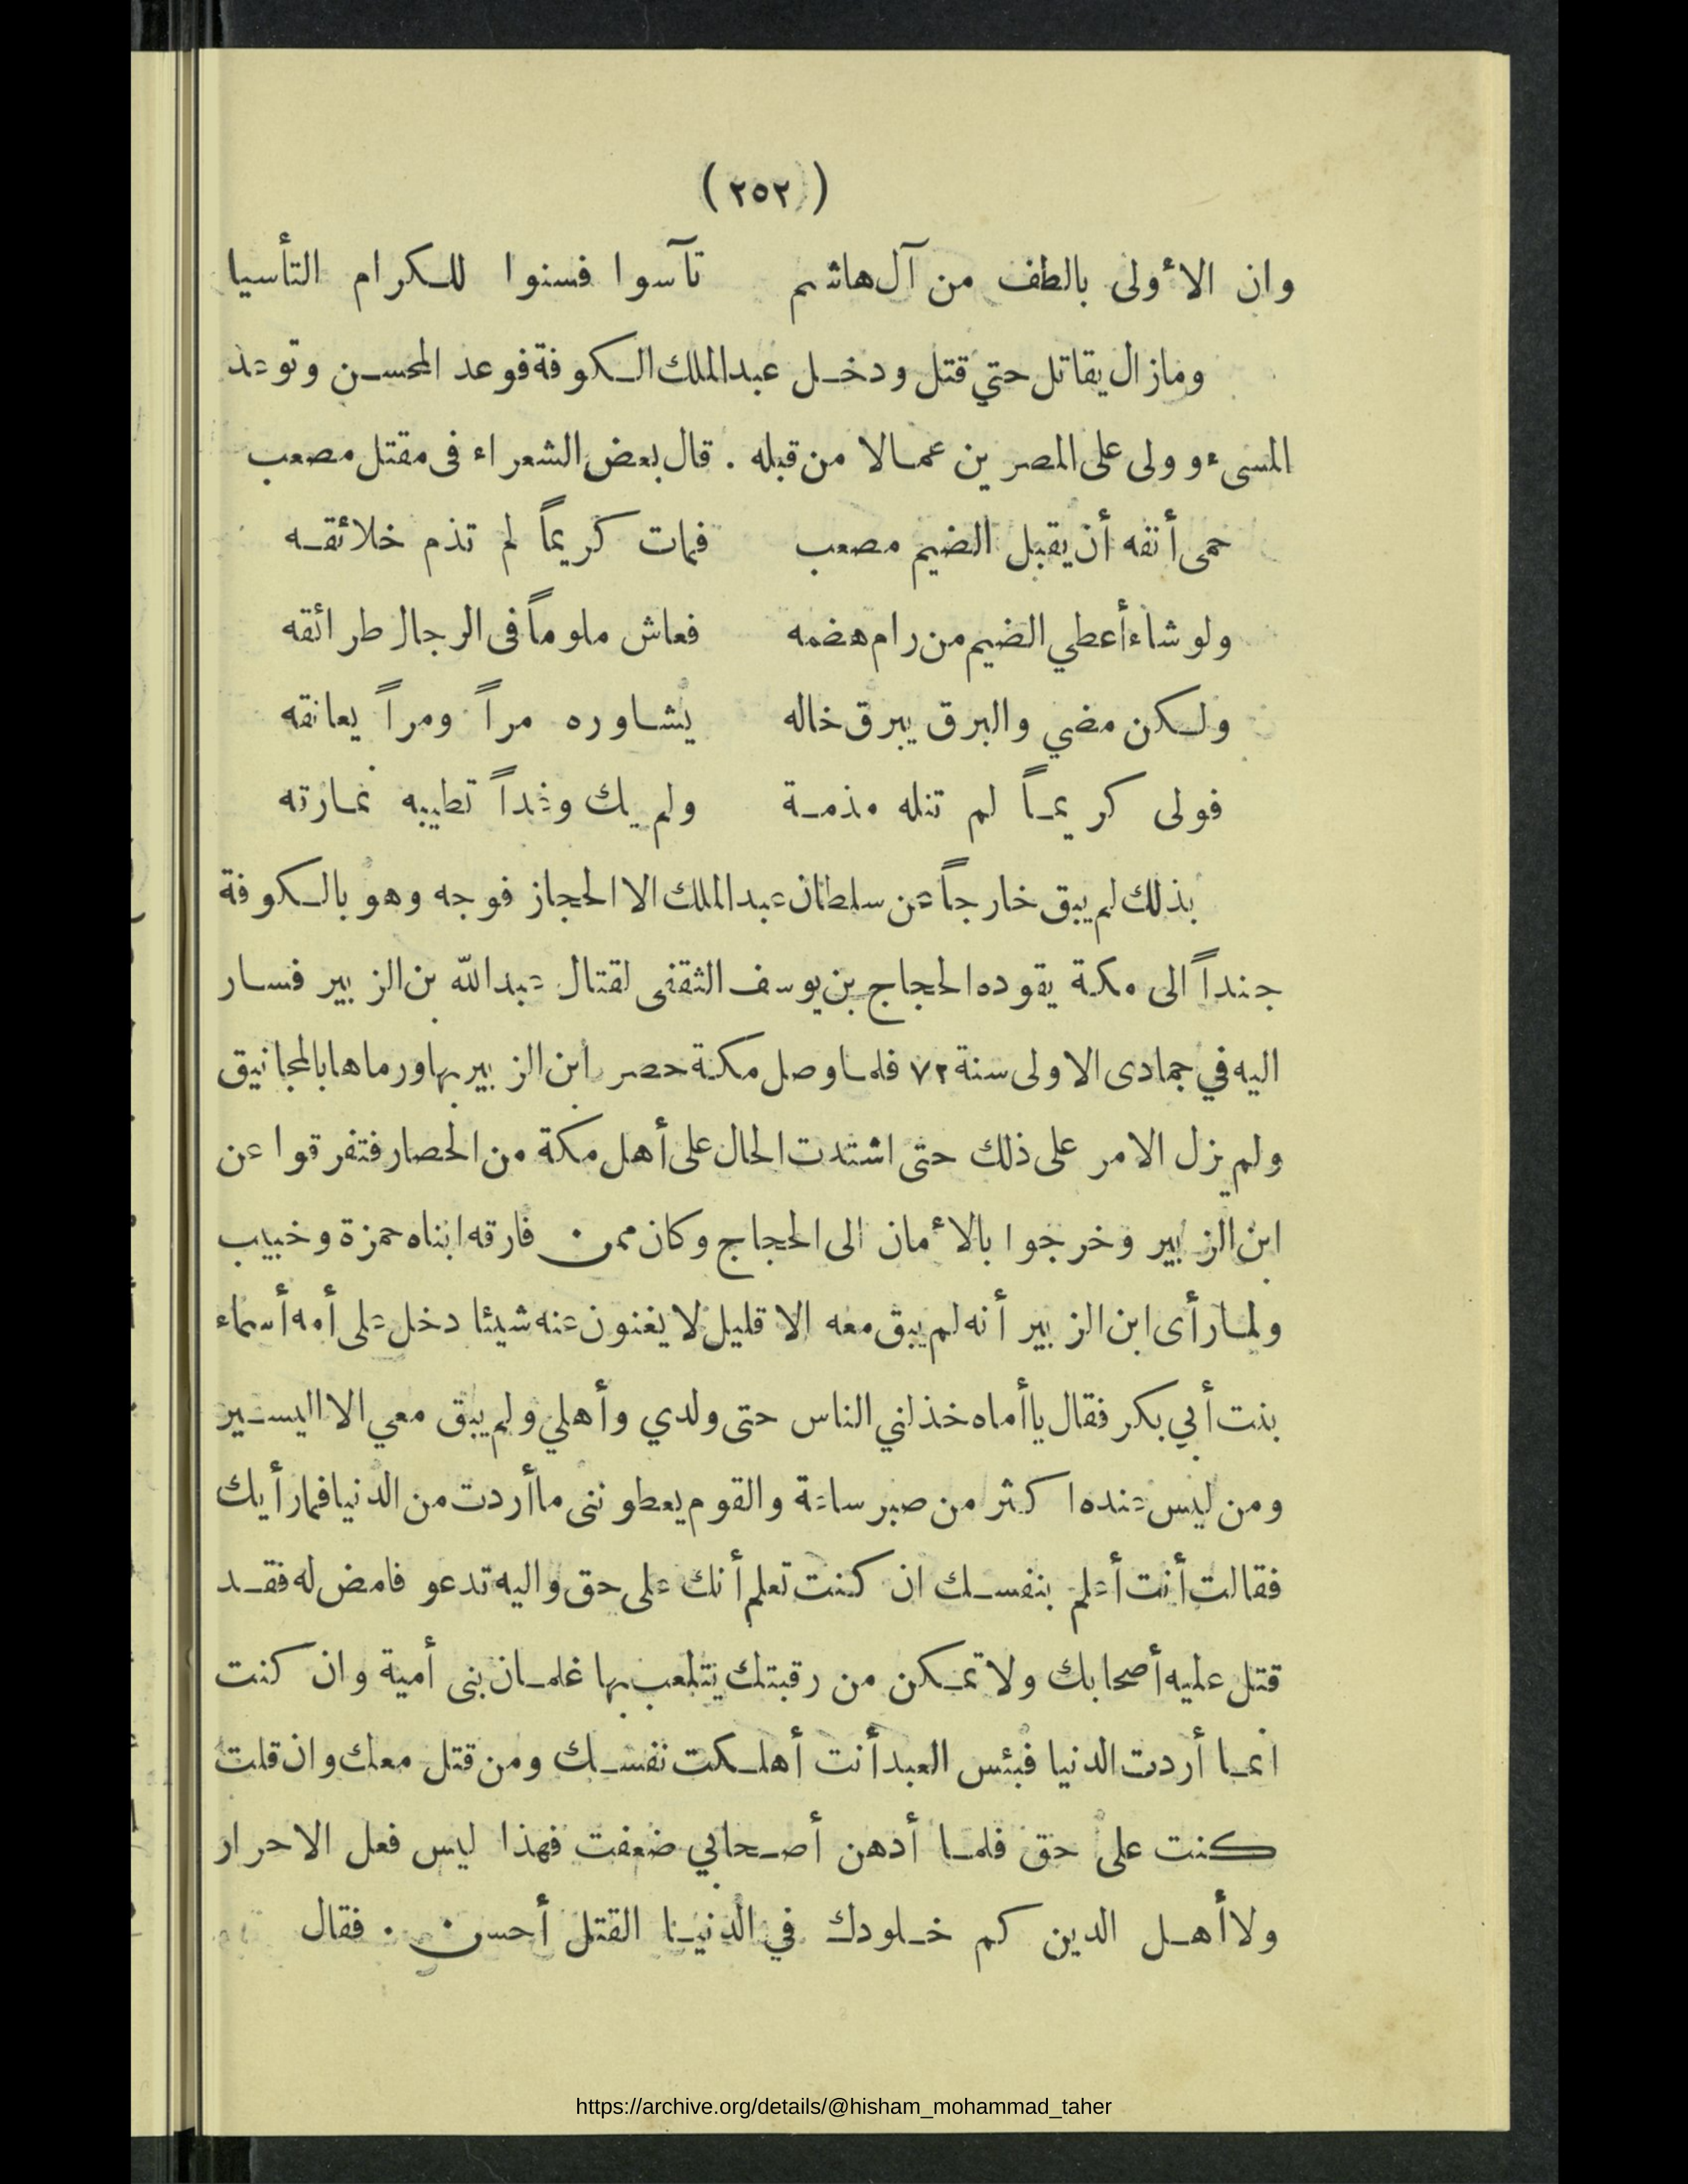 (٢٥٢)
وان الأولى بالطف من آل هاشم تآسوا فسنوا للكرام التأسيا
ومازال يقاتل حتي قتل ودخل عبدالملك الكوفة فوعد المحسن وتوعد
المسىء وولى على المصرين عمالا من قبله . قال بعض الشعراء فى مقتل مصعب
حمى أنفه أن يقبل الضيم مصعب فمات كريماً لم تذم خلائقه
ولو شاء أعطي الضيم من رام هضمه فعاش ملوماً فى الرجال طرائقه
ولكن مضي والبرق يبرق خاله يشاوره مراً ومراً يعانقه
فولى كريماً لم تنله مذمة ولم يك وغداً تطيبه نمارقه
بذلك لم يبق خارجاً عن سلطان عبدالملك الا الحجاز فوجه وهو بالكوفة
جنداً الى مكة يقوده الحجاج بن يوسف الثقفى لقتال عبدالله بن الزبير فسار
اليه في جمادى الاولى سنة ٧٢ فلما وصل مكة حصر ابن الزبير بها ورماها بالمجانيق
ولم يزل الامر على ذلك حتى اشتدت الحال على أهل مكة من الحصار فتفرقوا عن
ابن الزبير وخرجوا بالأمان الى الحجاج وكان ممن فارقه ابناه حمزة وخبيب
ولما رأى ابن الزبير أنه لم يبق معه الا قليل لا يغنون عنه شيئا دخل على أمه أسماء
بنت أبي بكر فقال ياأماه خذلني الناس حتى ولدي وأهلي ولم يبق معي الا اليسير
ومن ليس عنده اكثر من صبر ساعة والقوم يعطوننى ماأردت من الدنيا فمارأيك
فقالت أنت أعلم بنفسك ان كنت تعلم أنك على حق واليه تدعو فامض له فقد
قتل عليه أصحابك ولا تمكن من رقبتك يتلعب بها غلمان بنى أمية وان كنت
انما أردت الدنيا فبئس العبد أنت أهلكت نفسك ومن قتل معك وان قلت
كنت على حق فلما أدهن أصحابي ضعفت فهذا ليس فعل الاحرار
ولا أهل الدين كم خلودك في الدنيا القتل أحسن . فقال
https://archive.org/details/@hisham_mohammad_taher